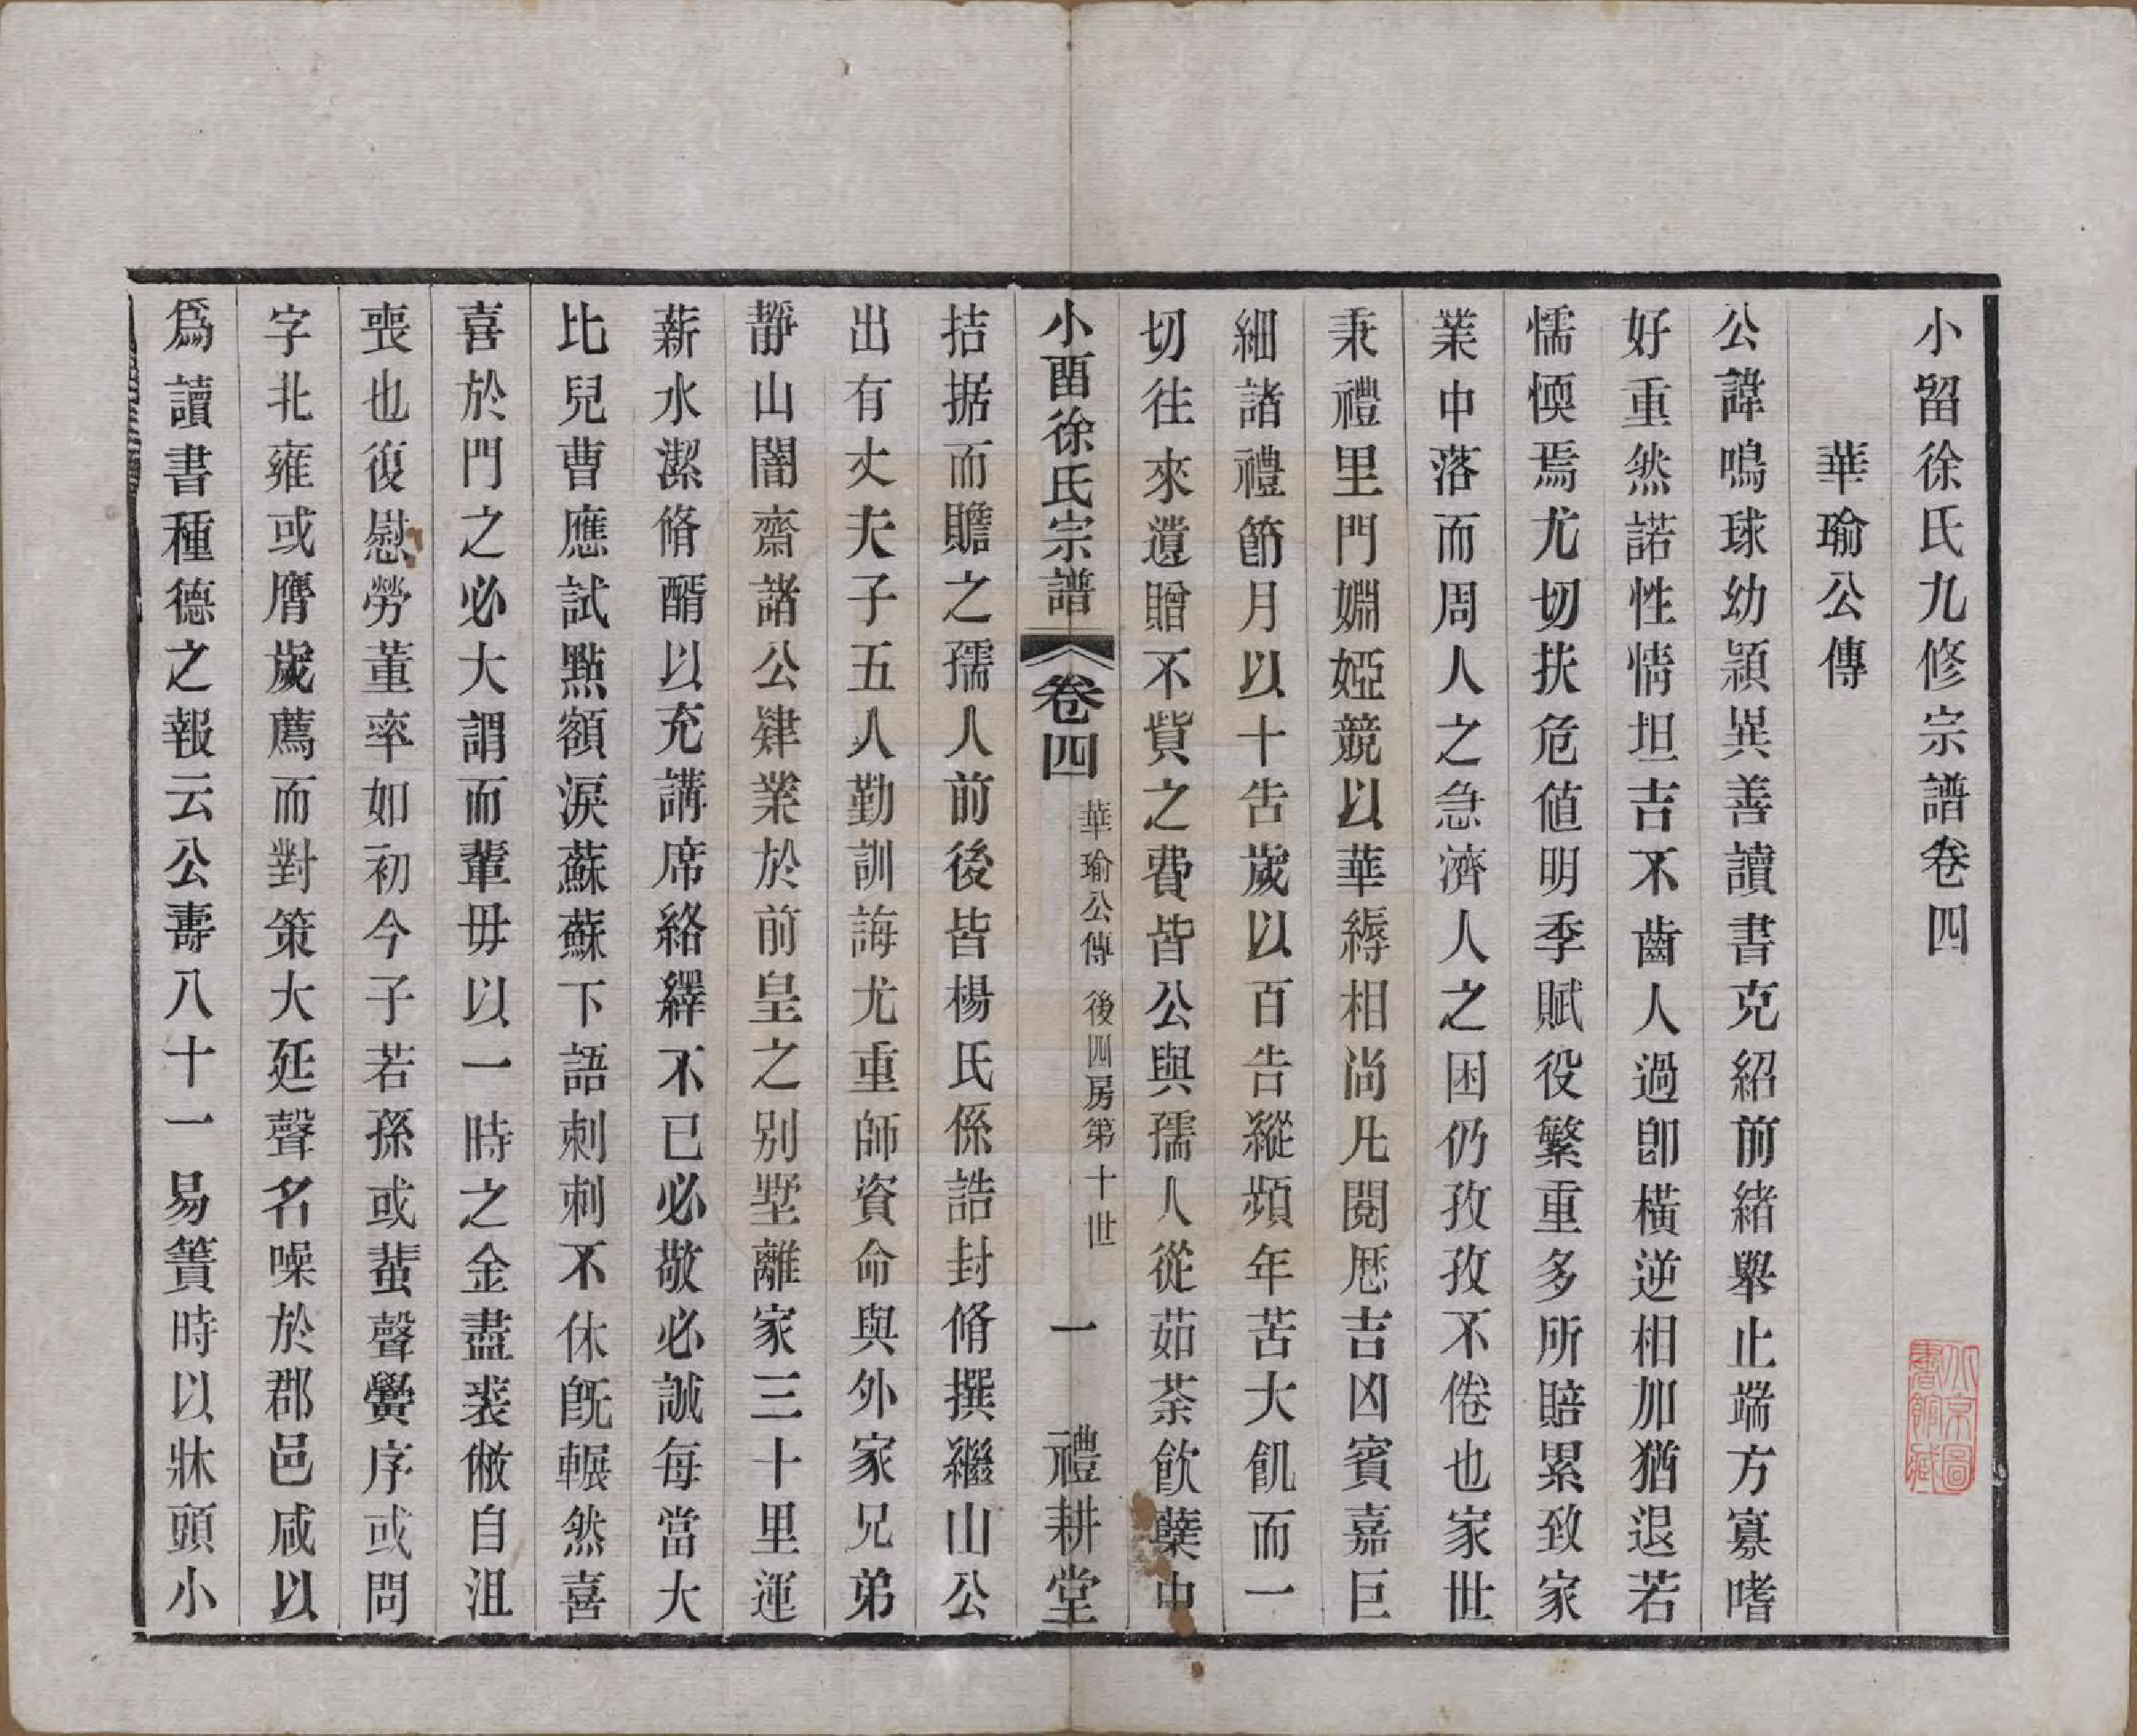 小留徐氏九修宗譜卷四
華瑜公傳
公諱鳴球幼穎異善讀書克紹前緒舉止端方寡嗜
好重然諾性情坦吉不齒人過卽橫逆相加猶退若
懦愞焉尤切扶危値明季賦役繁重多所賠累致家
業中落而周人之急濟人之困仍孜孜不倦也家世
秉禮里門婣婭競以華縟相尚凡閱歷吉凶賓嘉巨
細諸禮節月以十告歲以百告縱頻年苦大飢而一
切往來遺贈不貲之費皆公與孺人從茹荼飮櫱中
小畱徐氏宗譜 卷四 華瑜公傳 後四房第十世 一 禮耕堂
拮据而贍之孺人前後皆楊氏係誥封脩撰繼山公
出有丈夫子五人勤訓誨尤重師資命與外家兄弟
靜山闇齋諸公肄業於前皇之別墅離家三十里運
薪水潔脩醑以充講席絡繹不已必敬必誠每當大
比兒曹應試點額淚蘇蘇下語刺刺不休旣輾然喜
喜於門之必大謂而輩毋以一時之金盡裘僘自沮
喪也復慰勞董率如初今子若孫或蜚聲黌序或問
字北雍或膺歲薦而對策大延聲名噪於郡邑咸以
爲讀書種德之報云公壽八十一易簀時以牀頭小
北京圖書館藏